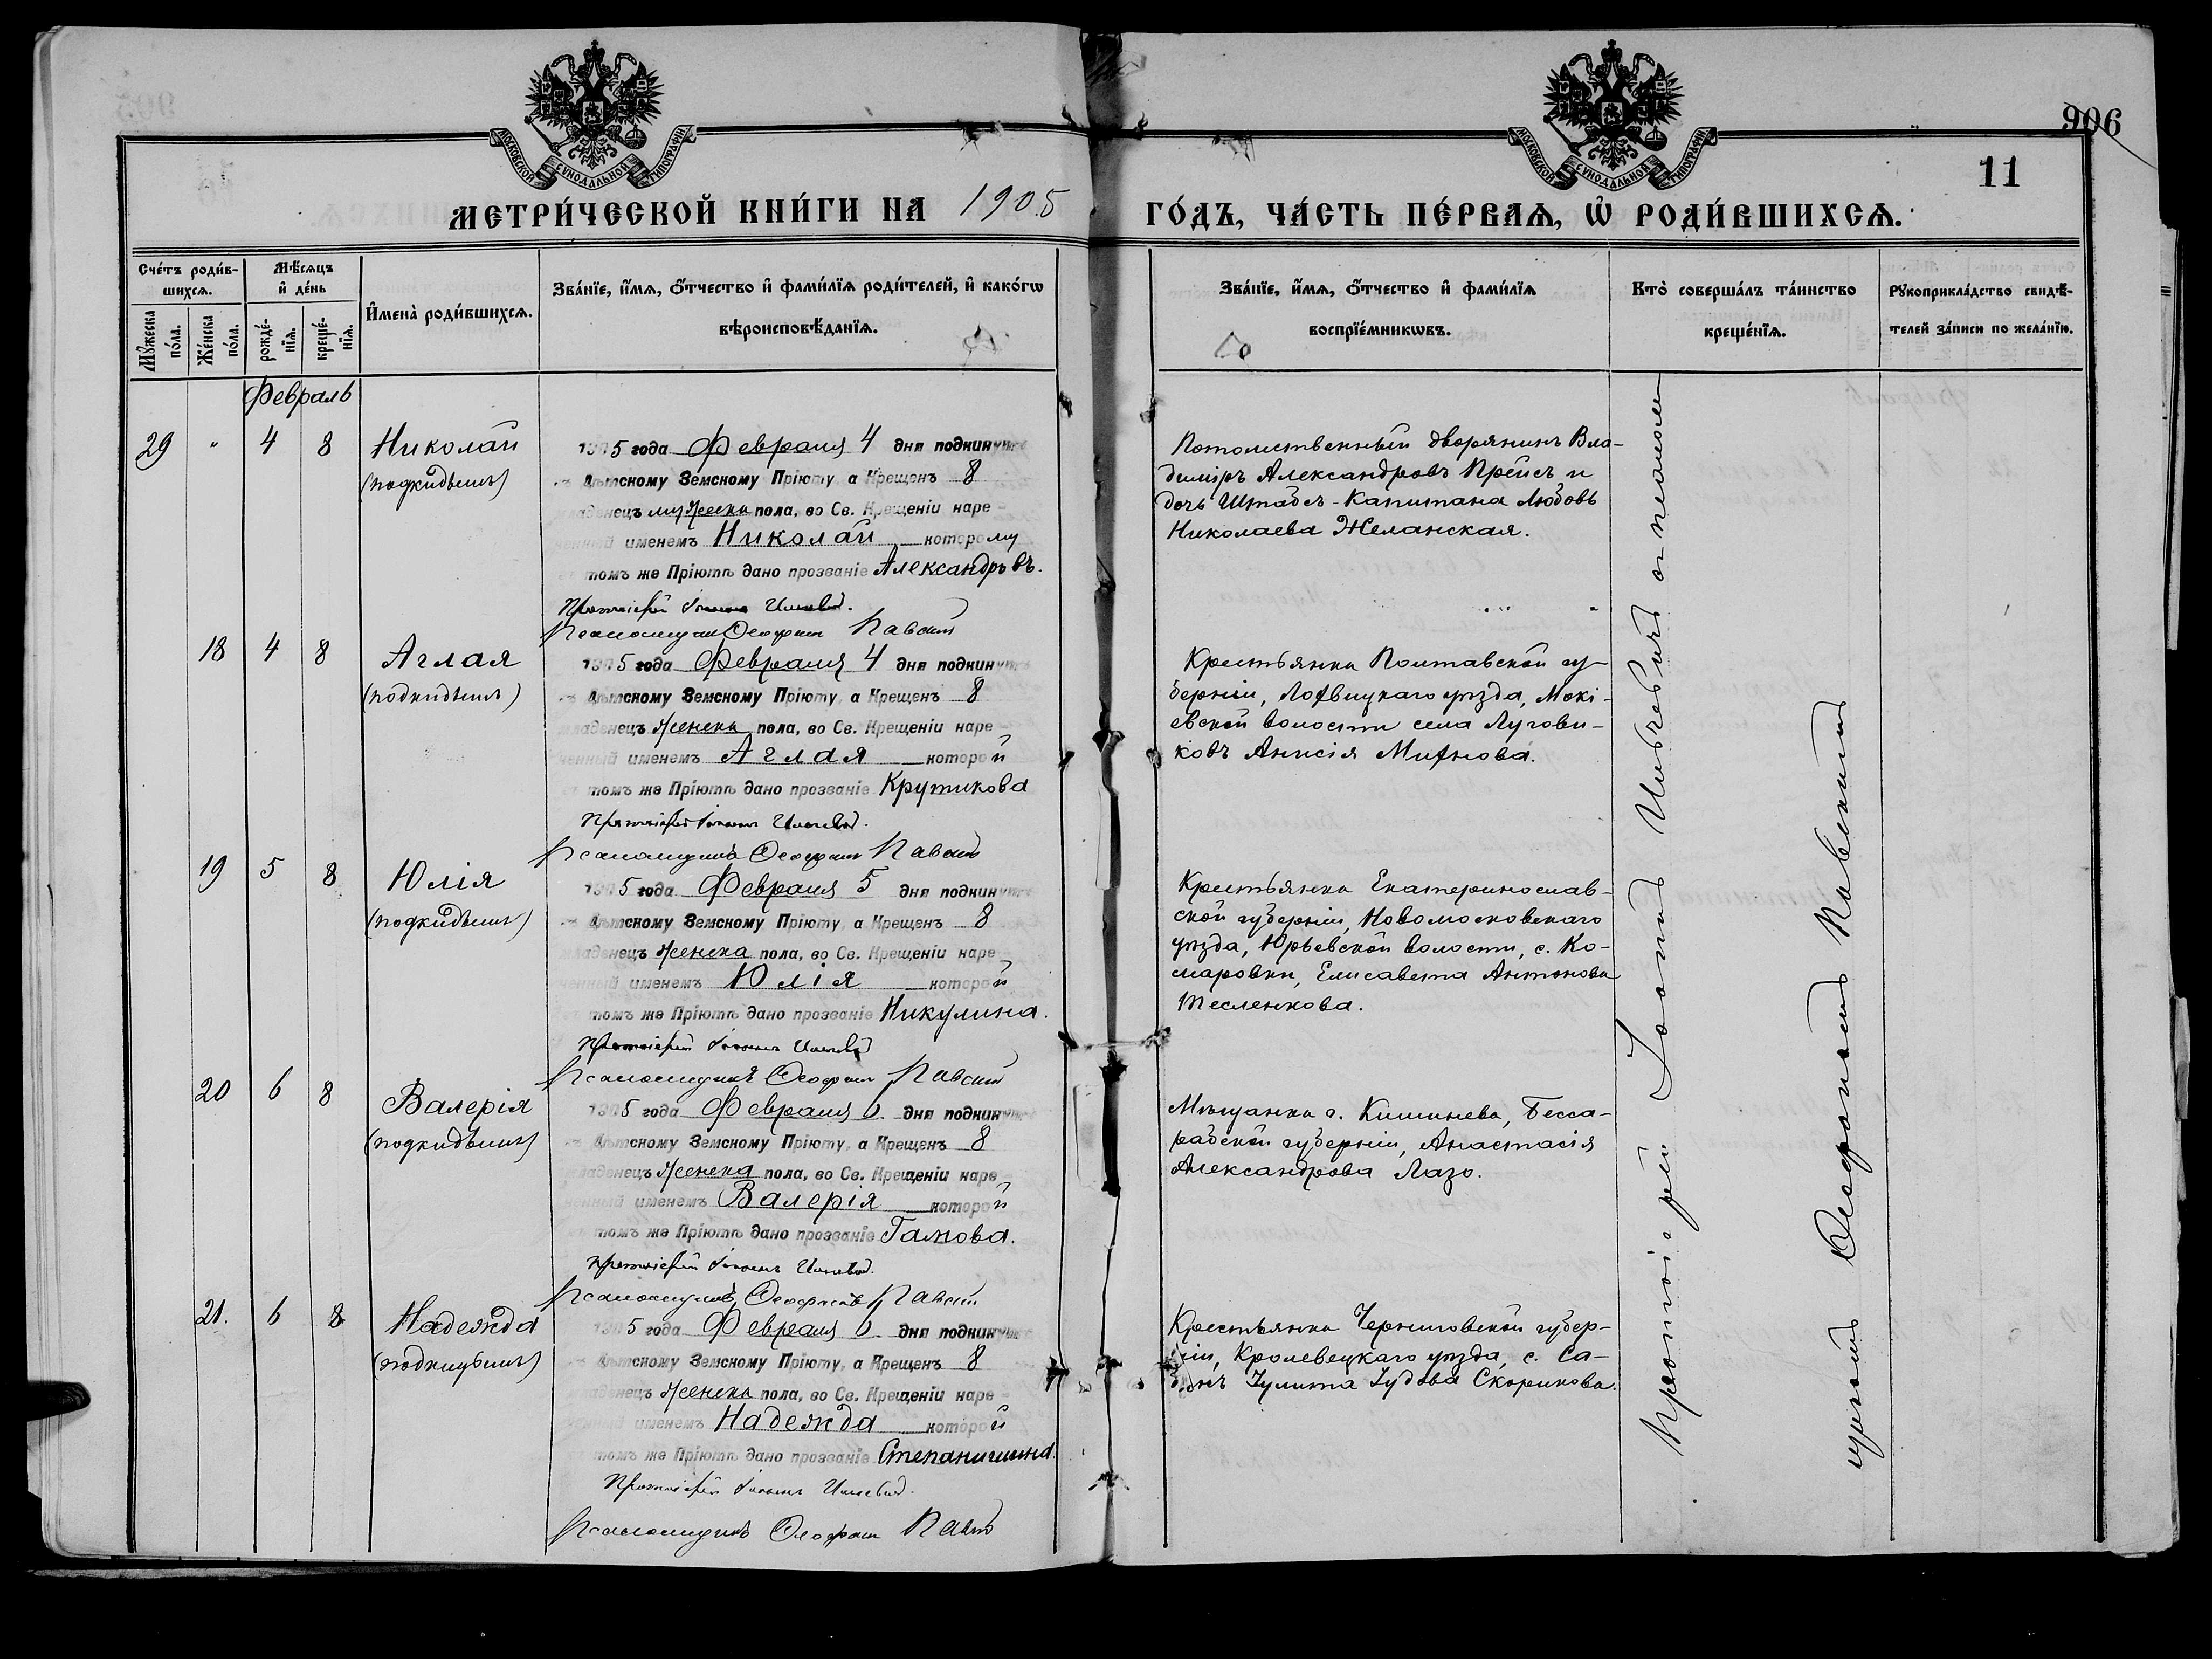 906
11
МОСКОВСКОЙ СѴНОДАЛЬНОЙ ТИПОГРАФІИ
МОСКОВСКОЙ СѴНОДАЛЬНОЙ ТИПОГРАФІИ
МЕТРИ́ЧЕСКОЙ КНИ́ГИ НА 1905 ГО́ДЪ, ЧА́СТЬ ПЕ́РВАѦ, Ѡ҆ РОДИ́ВШИХСѦ.
Сче́тъ роди́в-
шихсѧ.
Мꙋ́жеска по́ла.
Же́нска по́ла.
Мѣ́сѧцъ
и҆ де́нь
рожде́-
нїѧ.
креще́-
нїѧ.
И҆мена̀ роди́вшихсѧ.
Зва́нїе, и҆́мѧ, ѻ҆́тчество и҆ фами́лїѧ роди́телей, и҆ како́гѡ
вѣроисповѣ́данїѧ.
Зва́нїе, и҆́мѧ, ѻ҆́тчество и҆ фами́лїѧ
воспрїе́мникѡвъ.
Кто̀ соверша́лъ та́инство
креще́нїѧ.
Рꙋкоприкла́дство свидѣ́-
телей за́писи по жела́нїю.
Февраль
29 " 4 8 Николай
(подкидышъ)
1905 года Февраля 4 дня подкинутъ
Дѣтскому Земскому Пріюту, а Крещенъ 8
младенецъ мужеска пола, во Св. Крещеніи наре-
ченный именемъ Николай которому
томъ же Пріютѣ дано прозваніе Александровъ.
Протоіерей Іоаннъ Ильчевич.
Псаломщикъ Феофанъ Павскій
Потомственный дворянинъ Вла-
диміръ Александровъ Прейсъ и
дочь Штабсъ-Капитана Любовь
Николаева Желанская.
18 4 8 Аглая
(подкидышъ)
1905 года Февраля 4 дня подкинутъ
Дѣтскому Земскому Пріюту, а Крещенъ 8
младенецъ женска пола, во Св. Крещеніи наре-
ченный именемъ Аглая которой
томъ же Пріютѣ дано прозваніе Крутикова
Протоіерей Іоаннъ Ильчевич.
Псаломщикъ Феофанъ Павскій
Крестьянка Полтавской гу-
берніи, Лохвицкаго уѣзда, Мокі-
евской волости села Лугови-
ковъ Анисія Михнова.
19 5 8 Юлія
(подкидышъ)
1905 года Февраля 5 дня подкинутъ
Дѣтскому Земскому Пріюту, а Крещенъ 8
младенецъ женска пола, во Св. Крещеніи наре-
ченный именемъ Юлія которой
томъ же Пріютѣ дано прозваніе Никулина.
Протоіерей Іоаннъ Ильчевич
Псаломщикъ Феофанъ Павскій
Крестьянка Екатеринослав-
ской губерніи, Новомосковскаго
уѣзда, Юрьевской волости, с. Ко-
маровки, Елисавета Антонова
Тесленкова.
20 6 8 Валерія
(подкидышъ)
1905 года Февраля 6 дня подкинутъ
Дѣтскому Земскому Пріюту, а Крещенъ 8
младенецъ женска пола, во Св. Крещеніи наре-
ченный именемъ Валерія которой
томъ же Пріютѣ дано прозваніе Галкова.
Протоіерей Іоаннъ Ильчевич.
Псаломщикъ Феофанъ Павскій
Мѣщанка г. Кишинева, Бесса-
рабской губерніи, Анастасія
Александрова Лазо.
21. 6 8 Надежда
(подкидышъ)
1905 года Февраля 6 дня подкинутъ
Дѣтскому Земскому Пріюту, а Крещенъ 8
младенецъ женска пола, во Св. Крещеніи наре-
ченный именемъ Надежда которой
томъ же Пріютѣ дано прозваніе Степанишина.
Протоіерей Іоаннъ Ильчевич.
Псаломщикъ Феофанъ Павскій
Крестьянка Черниговской губер-
ніи, Кролевецкаго уѣзда, с. Са-
Іулита Іудова Скорикова.
Протоіерей Іоаннъ Ильчевичъ съ псалом-
щикомъ Феофаномъ Павскимъ